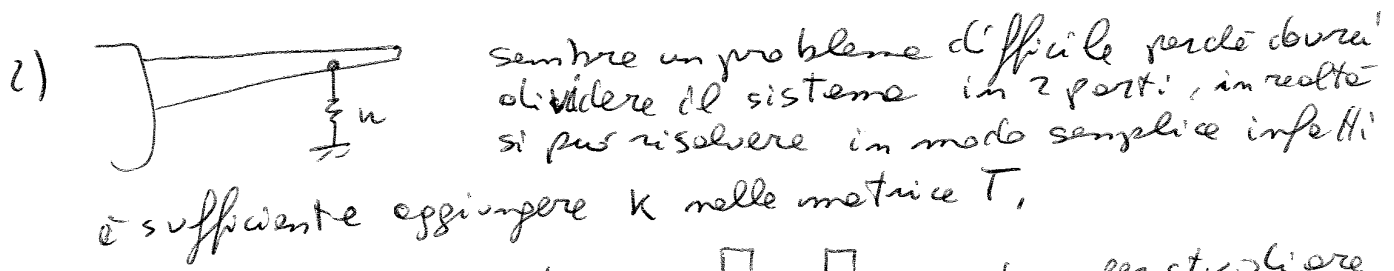 2) sembra un problema difficile perché dovrei
k dividere il sistema in 2 parti, in realtà
si può risolvere in modo semplice infatti
è sufficiente aggiungere K nella matrice T,